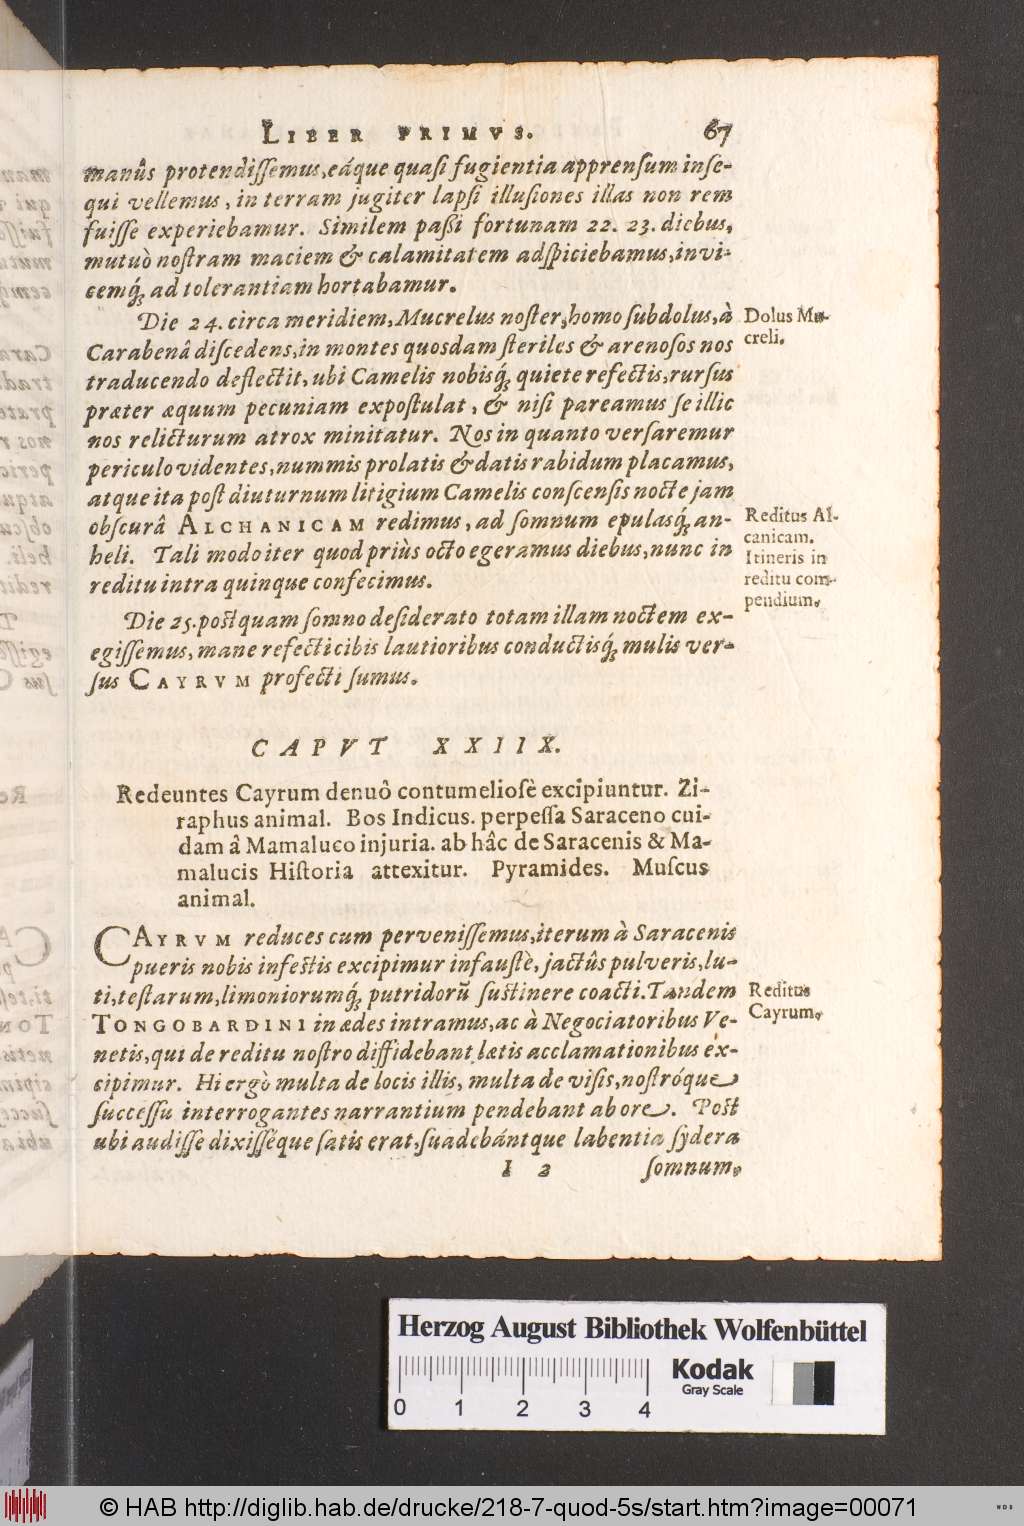 LIBER PRIMVS. 67
manûs protendissemus, eáque quasi fugientia apprensum inse-
qui vellemus, in terram jugiter lapsi illusiones illas non rem
fuisse experiebamur. Similem passi fortunam 22. 23. diebus,
mutuò nostram maciem & calamitatem adspiciebamus, invi-
cemq́; ad tolerantiam hortabamur.
Die 24. circa meridiem, Mucrelus noster, homo subdolus, à
Carabenâ discedens, in montes quosdam steriles & arenosos nos
traducendo deflectit, ubi Camelis nobisq́; quiete refectis, rursus
præter æquum pecuniam expostulat, & nisi pareamus se illic
nos relicturum atrox minitatur. Nos in quanto versaremur
periculo videntes, nummis prolatis & datis rabidum placamus,
atque ita post diuturnum litigium Camelis conscensis nocte jam
obscurâ ALCHANICAM redimus, ad somnum epulasq́; an-
heli. Tali modo iter quod priùs octo egeramus diebus, nunc in
reditu intra quinque confecimus.
Die 25. postquam somno desiderato totam illam noctem ex-
egissemus, mane refecti cibis lautioribus conductisq́; mulis ver-
sus CAYRVM profecti sumus.
Dolus Mu-
creli.
Reditus Al-
canicam.
Itineris in
reditu com-
pendium.
CAPVT XXIIX.
Redeuntes Cayrum denuò contumeliosè excipiuntur. Zi-
raphus animal. Bos Indicus. perpessa Saraceno cui-
dam â Mamaluco injuria. ab hâc de Saracenis & Ma-
malucis Historia attexitur. Pyramides. Muscus
animal.
CAYRVM reduces cum pervenissemus, iterum à Saracenis
pueris nobis infestis excipimur infaustè, jactûs pulveris, lu-
ti, testarum, limoniorumq́; putridorũ sustinere coacti. Tandem
TONGOBARDINI in ædes intramus, ac à Negociatoribus Ve-
netis, qui de reditu nostro diffidebant lætis acclamationibus ex-
cipimur. Hi ergò multa de locis illis, multa de visis, nostróque
successu interrogantes narrantium pendebant ab ore. Post
ubi audisse dixisséque satis erat, suadebántque labentia sydera
Reditus
Cayrum.
I 2 somnum,
Herzog August Bibliothek Wolfenbüttel
Kodak
Gray Scale
0 1 2 3 4
© HAB http://diglib.hab.de/drucke/218-7-quod-5s/start.htm?image=00071